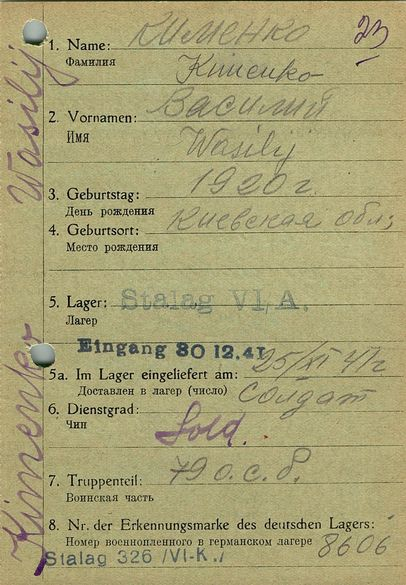 23
1. Name: КИМЕНКО
Фамилия
Kimenko
2. Vornamen: Василий
Имя
Wasilij
3. Geburtstag: 1920 г.
День рождения
4. Geburtsort: Киевская обл;
Место рождения
5. Lager: Stalag VI A.
Лагер
Eingang 30 12.41
5a. Im Lager eingeliefert am: 25/XI 41г
Доставлен в лагер (число)
6. Dienstgrad: Солдат
Чин
Sold.
7. Truppenteil: 79 о.с.б.
Воинская часть
8. Nr. der Erkennungsmarke des deutschen Lagers:
Номер военнопленного в германском лагере 8606
Stalag 326 /VI-K./
Kimenko Wasilij